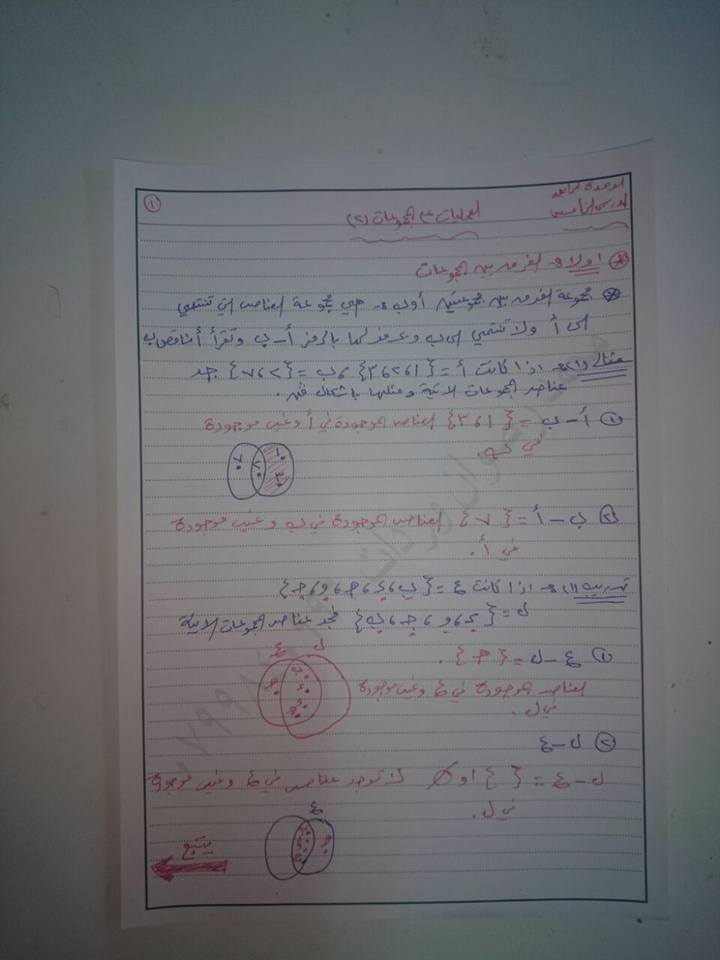 الوحدة الرابعة
الدرس الخامس
العمليات على المجموعات (٢)
١
أولاً :- الفرق بين المجموعات
مجموعة الفرق بين مجموعتين أ و ب :- هي مجموعة العناصر التي تنتمي
الى أ ولا تنتمي الى ب ويرمز لها بالرمز أ - ب وتقرأ أ ناقص ب
مثال (١) :- اذا كانت أ = {١، ٢، ٣} ، ب = {٢، ٧} جد
عناصر المجموعات الاتية ومثلها باشكال فن.
١ أ - ب = {١، ٣} العناصر الموجودة في أ وغير موجودة
في ب.
١ ٣ ٢ ٧
٢ ب - أ = {٧} العناصر الموجودة في ب وغير موجودة
في أ.
تدريب (١) :- اذا كانت ع = {ب، د، هـ، و، جـ}
ل = {د، و، جـ، ب} فجد عناصر المجموعات الاتية
١ ع - ل = {هـ}.
ل ع
العناصر الموجودة في ع وغير موجودة
في ل.
٢ ل - ع
ل - ع = { } او ∅ لا توجد عناصر في ع وغير موجودة
في ل.
ع
يتبع